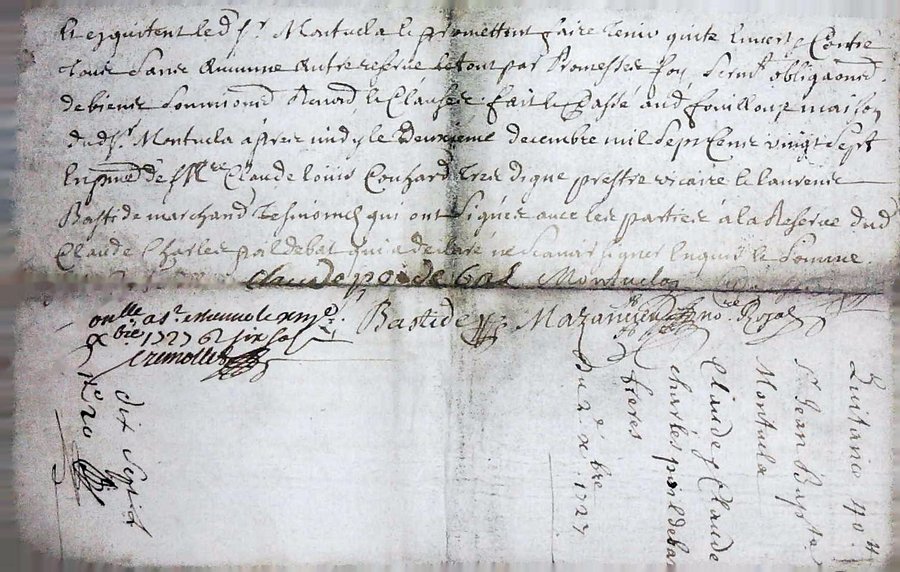 et quitent led sr. Montucla le promettent faire tenir quite envers et Contre
tous sans aucunne autre reserve le tout par Promesses foy sermt. obligaonrd
de biens soumionrd Renord le Clauses fait le Passé aud fouilloux maison
dud sr. Montucla apres midy le Deuxieme decembre mil sept Cens vingt sept
en pnce de Mre Claude louis Couhard tres digne prestre vicaire le laurens
Bastide marchand tesmoins qui ont signés avec les parties à la Reserve dud
Claude Charles poildebat qui a declaré ne scavoir signer enquis le somme.
claude poildebat Montucla
Bastide Mazancieu nore Royal
onlle a st.
xbre 1727 six sols
cremollet
dix sept
Quitance
st Jean Bapste
Montucla
Claude & Claude
charles poildebat
freres
Du 2 xbre 1727